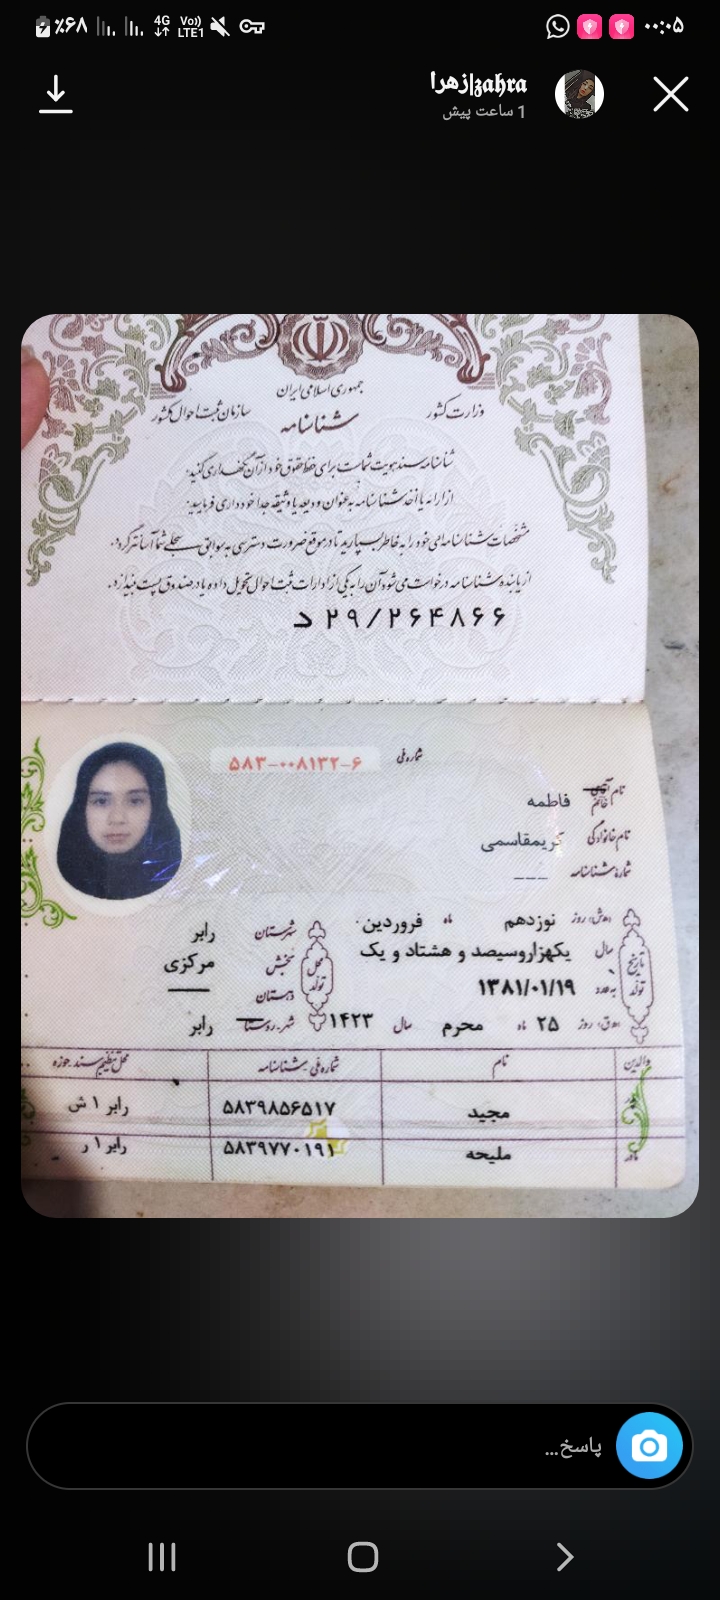 ٪۶۸ 4G Vo)) LTE1 ۰۰:۰۵
zahra|زهرا
1 ساعت پیش
جمهوری اسلامی ایران
وزارت کشور
سازمان ثبت احوال کشور
شناسنامه
شناسنامه سند هویت شماست برای حفظ حقوق خود از آن نگهداری کنید.
از ارائه یا اخذ شناسنامه به عنوان ودیعه یا وثیقه جداً خودداری فرمایید.
مشخصات شناسنامه‌ای خود را به خاطر بسپارید تا در موقع ضرورت دسترسی به سوابق سجلی شما آسانتر گردد.
از یابنده شناسنامه درخواست می‌شود آن را به یکی از ادارات ثبت احوال تحویل داده یا در صندوق پست بیندازد.
د ۲۹/۲۶۴۸۶۶
شماره ملی ۵۸۳-۰۰۸۱۳۲-۶
نام خانم فاطمه
نام خانوادگی کریمقاسمی
شماره شناسنامه ---
تاریخ تولد
روز نوزدهم ماه فروردین
سال یکهزاروسیصد و هشتاد و یک
به عدد ۱۳۸۱/۰۱/۱۹
روز ۲۵ ماه محرم سال ۱۴۲۳
محل تولد
شهرستان رابر
بخش مرکزی
دهستان —
شهر-روستا رابر
والدین نام شماره ملی-شناسنامه محل تنظیم سند حوزه
پدر مجید ۵۸۳۹۸۵۶۵۱۷ رابر ۱ ش
مادر ملیحه ۵۸۳۹۷۷۰۱۹۱ رابر ۱ ر
پاسخ...